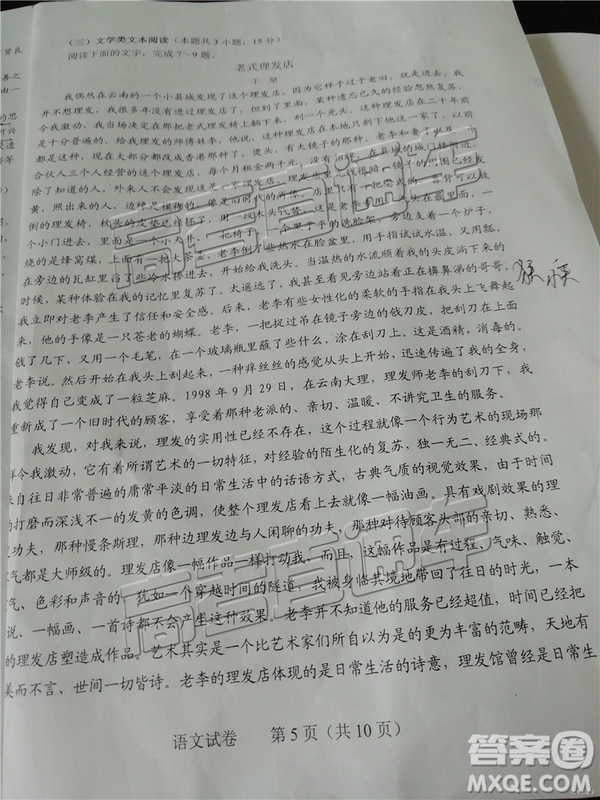 (三)文学类文本阅读(本题共3小题,15分)
阅读下面的文字,完成7~9题。
老式理发店
于坚
我偶然在云南的一个小县城发现了这个理发店,因为它样子过于老旧,就走进去。
并不想理发,我很多年没有进过理发店了,但到了里面,某种遗忘已久的经验忽然复苏,
令我激动。我当场决定在那把老式理发椅上躺下来,刮一个光头。这种理发店在二十年前
是十分普遍的。给我理发的师傅姓李,他说,这种理发店在本地只剩下他这一家了,以前
都是这种,现在大部分都改成香港那种了,烫头、有大镜子的那种。老李和妻
合伙人三个人经营的这个理发店,每个月租金两千元,没有
除了知道的人,外来人不会发现这是一家理发店。
黄,照出来的人,边缘是模糊的,像旧时代的画像。店里只有一把
倒的理发椅,枕头的皮垫已经坏了,用一段木头代替。这是
个小门进去,里面是一个小天井,一把椅子,
烧的是蜂窝煤,上面有一把大茶壶。老李倒了些热水在脸盆里,用手指试试水温,又用瓢
在旁边的瓦缸里舀了些冷水掺进去,开始给我洗头。当温热的水流顺着我的头皮淌下来的
时候,某种体验在我的记忆里复苏了。太遥远了,我甚至看见旁边站着正在揩鼻涕的哥哥。
我立即对老李产生了信任和安全感。后来,老李有些女性化的柔软的手指在我头上飞舞起
来,他的手像是一只苍老的蝴蝶。老李,一把捉过吊在镜子旁边的饯刀皮,把刮刀在上面
饯了几下,又用一个毛笔,在一个玻璃瓶里蘸了些什么,涂在刮刀上。这是酒精,消毒的。
老李说。然后开始在我头上刮起来,一种痒丝丝的感觉从头上开始,迅速传遍了我的全身,
我觉得自己变成了一粒芝麻。1998年9月29日,在云南大理,理发师老李的刮刀下,我
重新成了一个旧时代的顾客,享受着那种老派的、亲切、温暖、不讲究卫生的服务。
我发现,对我来说,理发的实用性已经不存在,这个过程就像一个行为艺术的现场那
样令我激动,它有着所谓艺术的一切特征,对经验的陌生化的复苏,独一无二、经典式的。
来自往日非常普遍的庸常平淡的日常生活中的话语方式,古典气质的视觉效果,由于时间
的打磨而深浅不一的发黄的色调,使整个理发店看上去就像一幅油画。具有戏剧效果的理
发功夫,那种慢条斯理,那种边理发边与人闲聊的功夫、那种对待顾客头部的亲切、熟悉、
气都是大师级的。理发店像一幅作品一样打动我。而且,这幅作品是有过程、气味、触觉、
气、色彩和声音的。犹如一个穿越时间的隧道,我被身临其境地带回了往日的时光,一本
说、一幅画、一首诗都不会产生这种效果。老李并不知道他的服务已经超值,时间已经将他
的理发店塑造成作品。艺术其实是一个比艺术家们所自以为是的更为丰富的范畴,天地有
美而不言、世间一切皆诗。老李的理发店体现的是日常生活的诗意,理发馆曾经是日常生
语文试卷 第5页(共10页)
高考直通车
高考直通车
答案圈
MXQE.COM